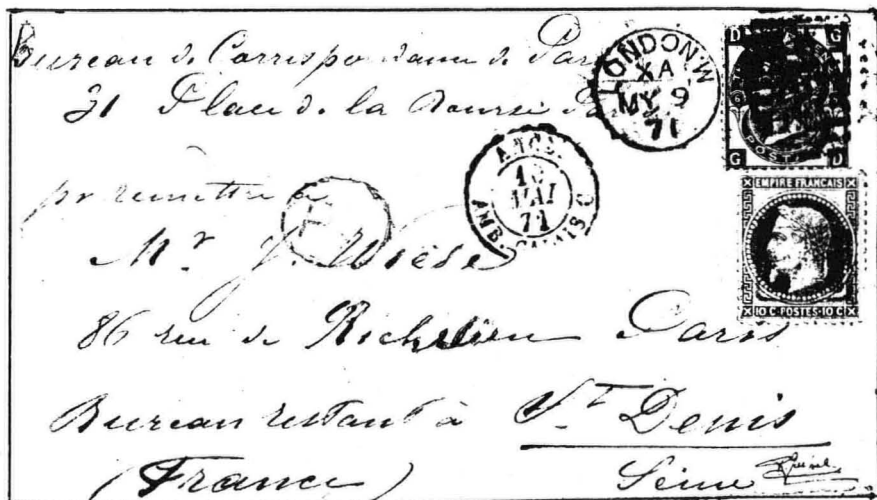 Bureau de Correspondance de Par
31 Place de la Bourse Pa
LONDON W
XA
MY 9
71
D G
POSTA
G D
ANGL.
10
MAI
71
AMB. CALAIS C
EMPIRE FRANÇAIS
10 C · POSTES · 10 C
pr remettre à
Mr J. Wiese
86 rue de Richelieu Paris
Bureau restant à St Denis
(France) Seine